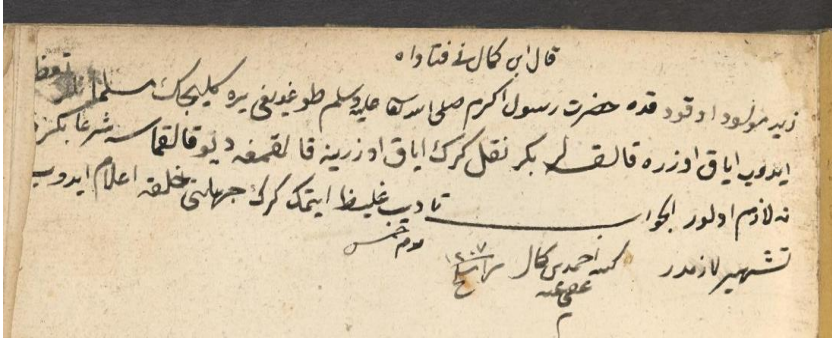 قال ابن كمال فى فتاواه
زيد مولود اوقودقده حضرت رسول اكرم صلى الله تعالى عليه وسلم طوغديغى يره كلیجك مسلمانلر تعظيم
ايدوب اياق اوزره قالقسلر بكر نقل كرك اياق اوزرينه قالقمغه ديو قالقماسه شرعا بكره
نه لازم اولور الجواب تأديب غليظ ايتمك كرك جهلنى خلقه اعلام ايدوب
تشهير لازمدر كتبه احمد بن كمال
عفى عنه
١٢٠٧